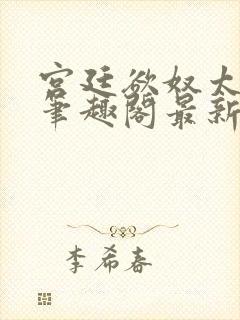 宫廷欲奴太
笔趣阁最新
李希春